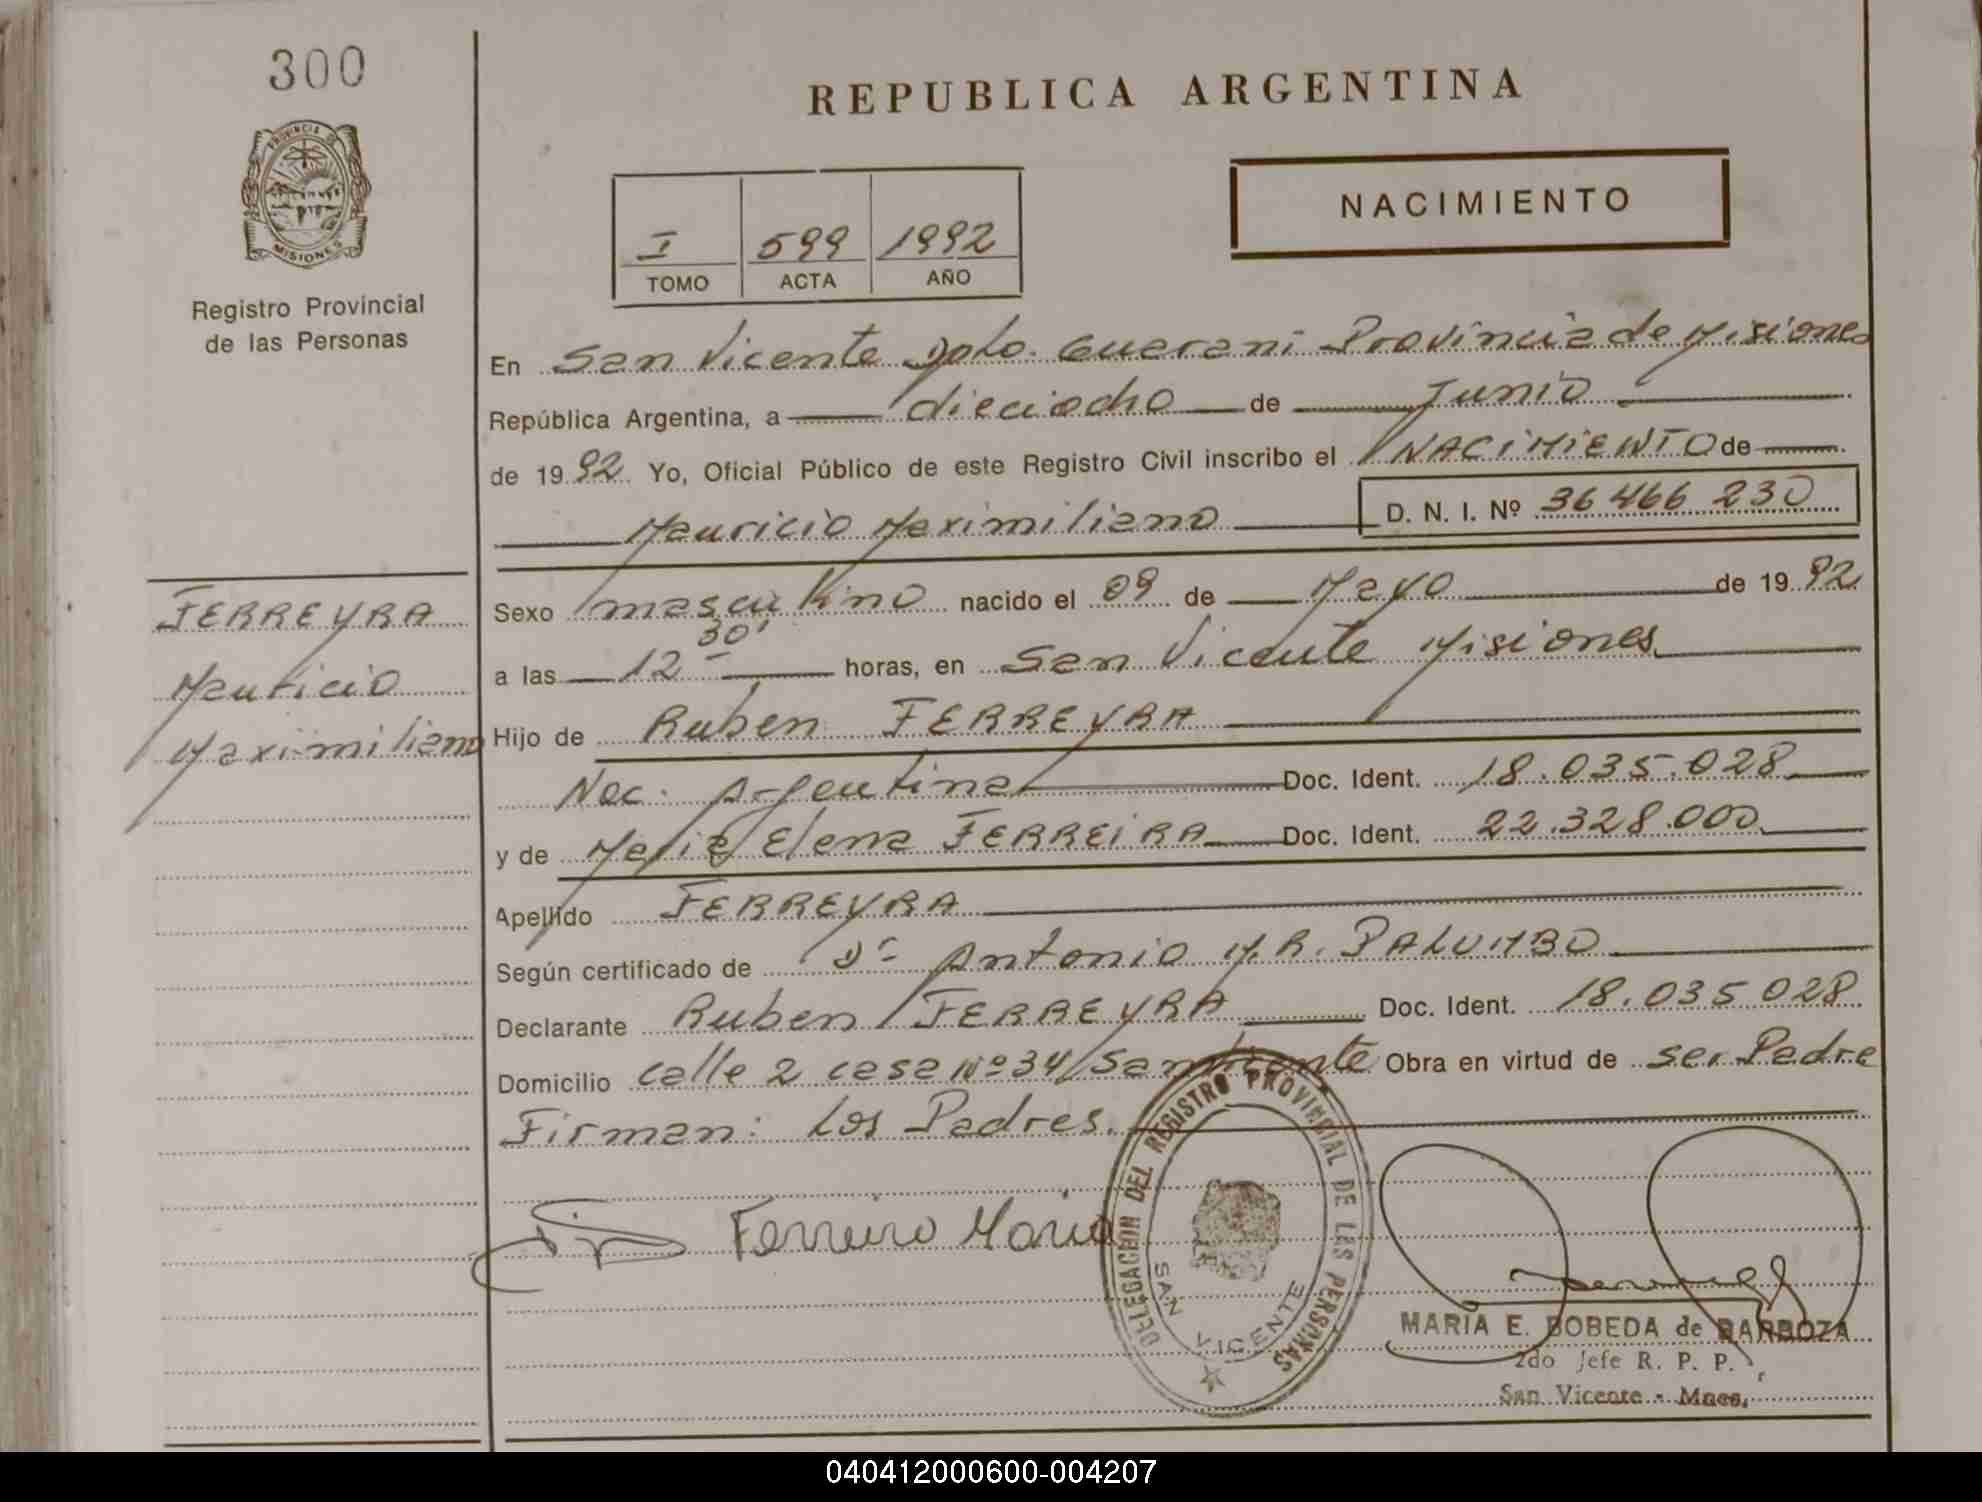 300
PROVINCIA DE
MISIONES
Registro Provincial
de las Personas
FERREYRA
Mauricio
Maximiliano
REPUBLICA ARGENTINA
I 599 1992
TOMO ACTA AÑO
NACIMIENTO
En San Vicente Dpto. Guarani Provincia de Misiones
República Argentina, a dieciocho de Junio
de 1992 Yo, Oficial Público de este Registro Civil inscribo el NACIMIENTO de
Mauricio Maximiliano D. N. I. Nº 36 466 230
Sexo masculino nacido el 09 de Mayo de 1992
a las 12 30' horas, en San Vicente Misiones
Hijo de Ruben FERREYRA
Nac. Argentina Doc. Ident. 18.035.028
y de Maria Elena FERREIRA Doc. Ident. 22.328.000
Apellido FERREYRA
Según certificado de Dr Antonio M. R. PALUMBO
Declarante Ruben FERREYRA Doc. Ident. 18.035 028
Domicilio calle 2 casa Nº 34 San Vicente Obra en virtud de ser Padre
Firman: Los Padres.
Ferreira Maria
DELEGACION DEL REGISTRO PROVINCIAL DE LAS PERSONAS
SAN VICENTE
MARIA E. BOBEDA de BARBOZA
2do Jefe R. P. P.
San Vicente - Mnes.
040412000600-004207